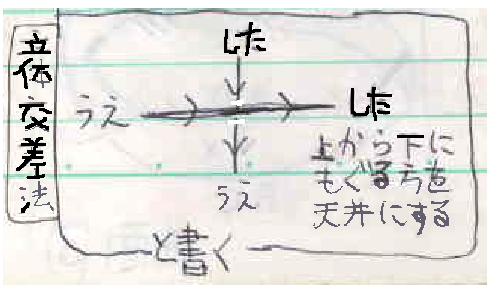 立体交差法
した
うえ
した
うえ
上から下に
もぐる方を
天井にする
と書く